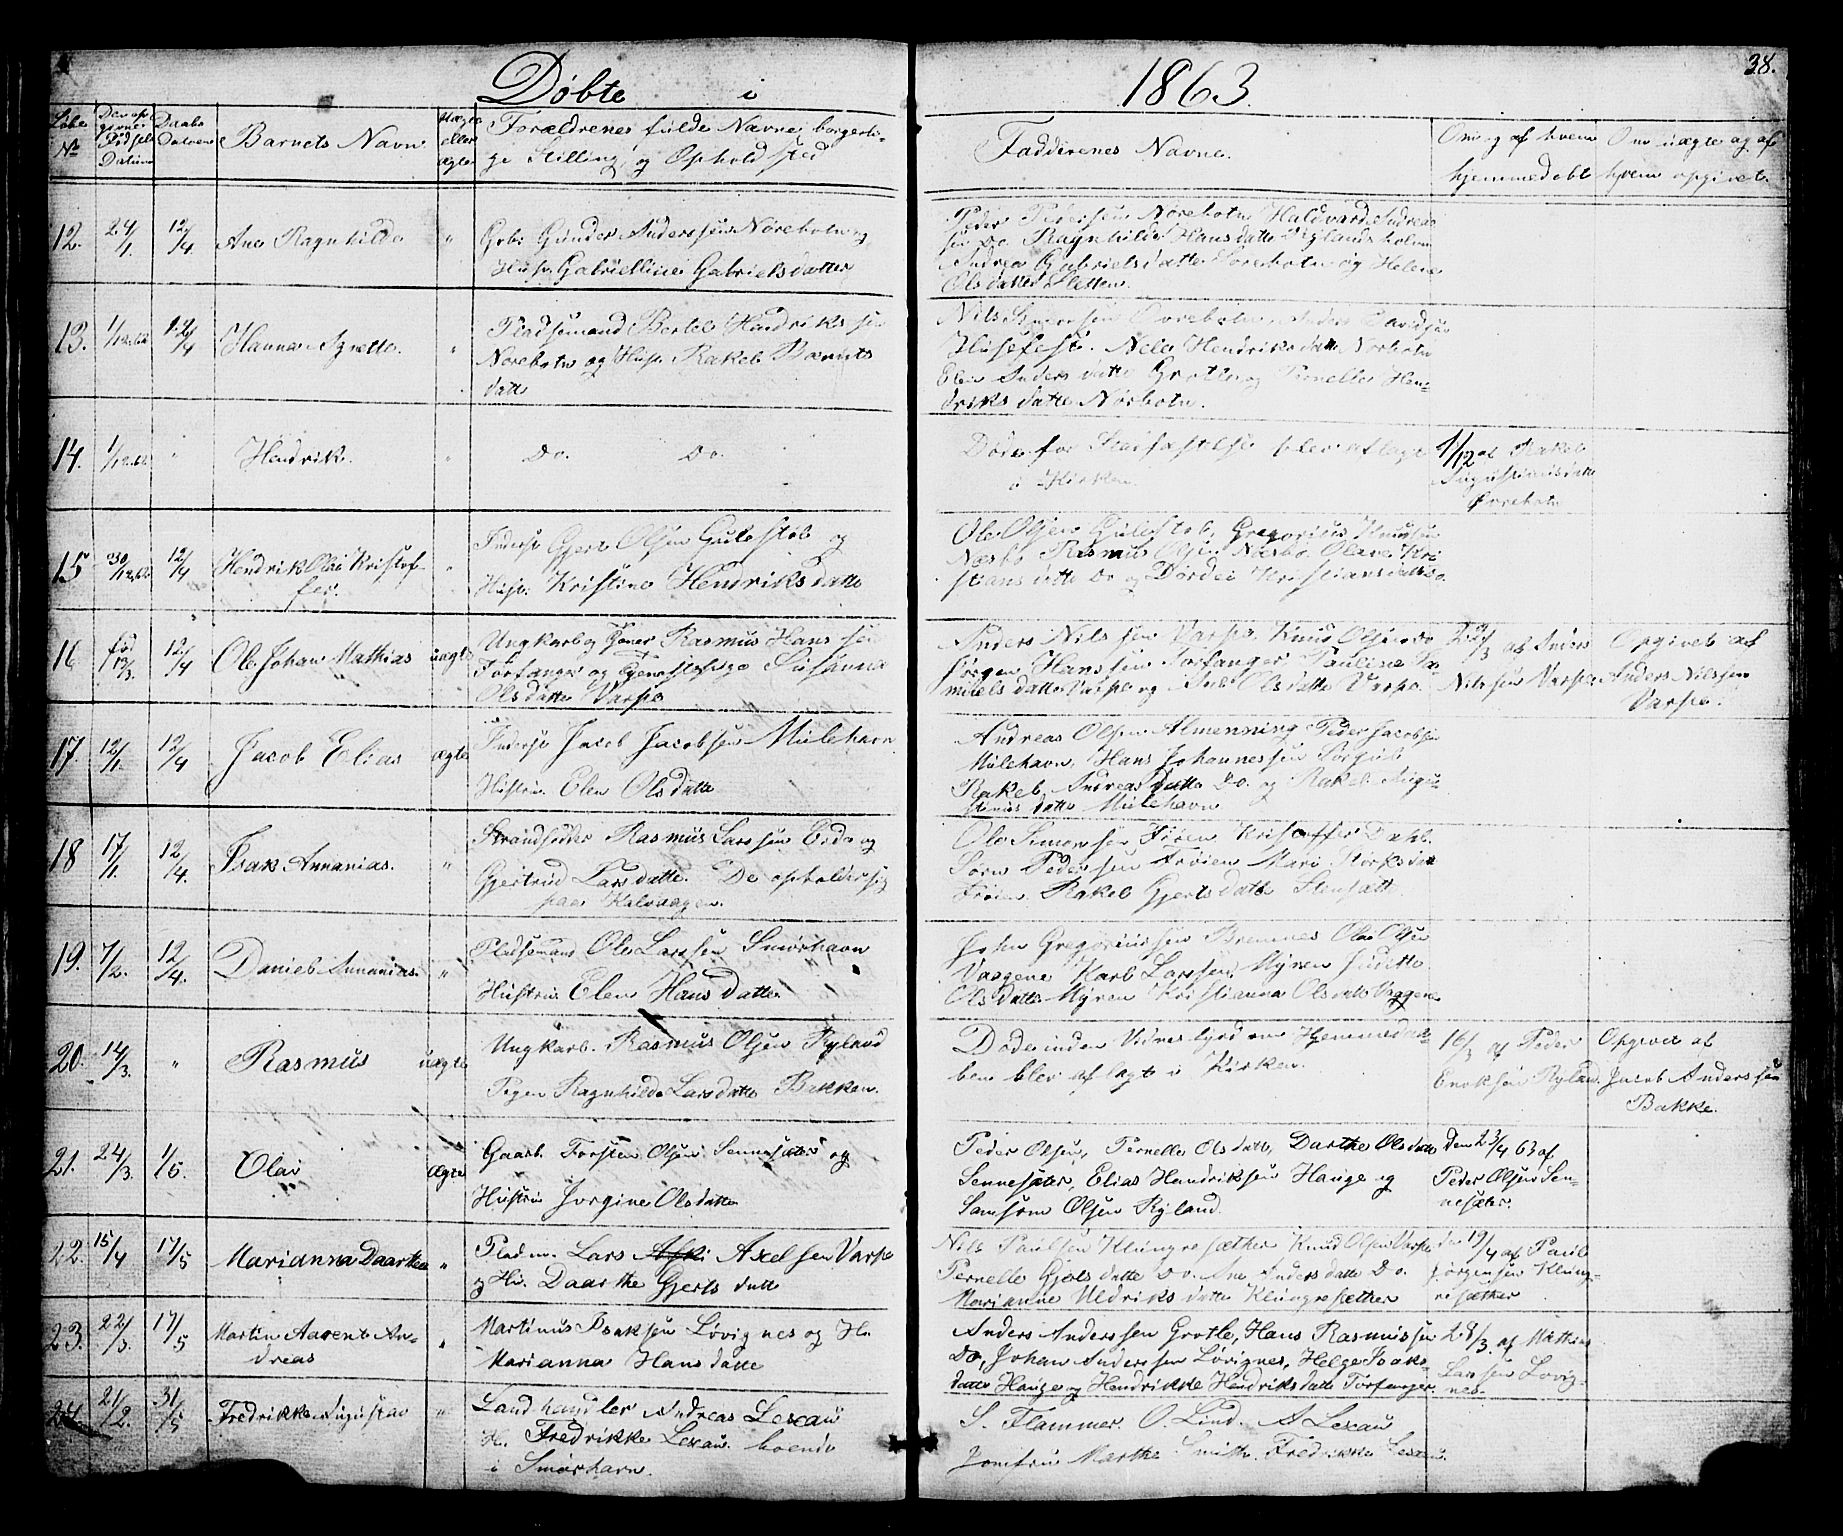 38.
Døbte i 1863.
Løbe No
Den opgivne Fødsels Datum
Daabs Datoen
Barnets Navn
Uægte eller ægte
Forældrenes fulde Navne, borgerli-
ge Stilling, og Opholdsted
Faddernes Navne.
Om og af hvem
hjemmedøbt
Om uægte og af
hvem opgivet.
12. 24/1. 12/4. Ane Ragnhilde "
Gbr. Gunder Anderssen Nörebotn og
Hustr. Gabrielline Gabrielsdatter
Peder Pedersen Nörebotn Haldvard Andrea
sen Do. Ragnhilde Hansdatte Ryglandsholm
Andrea Gabrielsdatte Nörebotn og Helene
Olsdatte Sletten.
13. 1/12.62 12/4 Hanna Agnette. "
Pladsemand Bertel Hendrikssen
Nörebotn og Hust. Rakel Berents
datte
Nils Anderssen Övrebotn, Anders Davidsen
Husefest. Nele Hendriksdatte Norbotn
Elen Andersdatte Grotle og Pernelle Hen-
driksdatte Norbotn.
14. 1/12.62 " Hendrik. "
Do. Do.
Døde før Stadfæstelse blev aflagt
i Kirken.
1/12 af Rakel
Augustinusdatte
Övrebotn
15 30/12.62 12/4 Hendrik Olai Kristof-
fer. "
Inderst Gjert Olsen Gulestöl og
Hustr. Kristine Hendriksdatte
Ole Olsen Gulestöl, Gregorius Knudsen
Næsbø Rasmus Olsen Næsbø. Olave Kri
stiansdatte Do og Dordei Kristiansdatte Do.
16 fød 13/3. 12/4. Ole Johan Mathias uægte
Ungkarl og Tjener Rasmus Hanssen
Torfanger og Tjenestepige Susanna
Olsdatte Varpe
Anders Nilssen Varpe, Knud Olsen Do
Jörgen Hanssen Torfanger Pauline Sa-
muelsdatte Varpe og Ane Olsdatte Varpe.
22/3 af Anders
Nilssen Varpe.
Opgivet af
Anders Nilssen
Varpe.
17. 12/1. 12/4 Jacob Elias ægte
Inderst Jacob Jacobsen Mulehavn
Hustru Elen Olsdatte
Andreas Olsen Almenning Peder Jacobsen
Mulehavn, Hans Johannessen Sörgul
Rakel Andreasdatte Do. og Rakel Augu-
stinusdatte Mulehavn
18 17/1. 12/4. Isak Annanias. "
Strandsidder Rasmus Larssen Eide og
Gjertrud Larsdatte. De opholder sig
paa Kalvaagen.
Ole Simonssen Fröien Kristoffer Dahl.
Sörn Pedersen Fröien Mari datt
Fröien. Rakel Gjertsdatte Stensætt.
19. 7/2. 12/4. Daniel Annanias. "
Pladsemand Ole Larssen Smørhavn
Hustru Elen Hansdatte
John Gregoriussen Bremnes Ole Olsen
Vaagene Karl Larssen, Myren Judette
Olsdatte Myren Kristianna Olsdatte Vaagene
20. 14/3. " Rasmus uægte
Ungkarl. Rasmus Olsen Ryland
Pigen Ragnhilde Larsdatte Bakken.
Døde inden Vidnesbyrd om Hjemmedaa-
ben blev aflagt i Kirken.
16/3 af Peder
Enoksen Ryland.
Opgivet af
Jacob Anderssen
Bakke.
21. 24/3. 1/5. Olai ægte
Gaarb. Torsten Olsen Sennesæter og
Hustru Jorgine Olsdatte
Peder Olsen, Pernelle Olsdatte, Darthe Olsdatte
Sennesæter, Elias Hendriksen Hauge og
Samson Olsen Ryland.
Den 23/4 63 af
Peder Olsen Sen-
nesæter.
22. 15/4 17/5 Marianna Daarthea "
Pladm. Lars Axelsen Varpe
og Hu. Daarthe Gjertsdatte
Nils Paulsen Klungresæther Knud Olsen Varpe
Pernelle Gjertsdatte Do. Ane Andersdatte Do.
Marianne Uldriksdatte Klungresæther
den 19/4 af Paul
Jørgensen Klung-
resæther
23. 22/3. 17/5 Martin Aarent An-
dreas "
Martinus Isaksen Løvignes og H.
Marianna Hansdatte
Anders Anderssen Grotle, Hans Rasmussen
Do, Johan Anderssen Løvignes, Helge Isaks-
datte Hauge og Hendrikke Hendriksdatte Torfanger.
28/3. af Mathias
Larssen Lovig-
nes.
24. 21/2. 31/5 Fredrikke Augusta "
Landhandler Andreas Lexau
H. Fredrikke Lexau. boende
i Smørhavn.
S. Flammer. O. Lind. A Lexau
Jomfru Marthe Smith. Fredrikke Lexau.